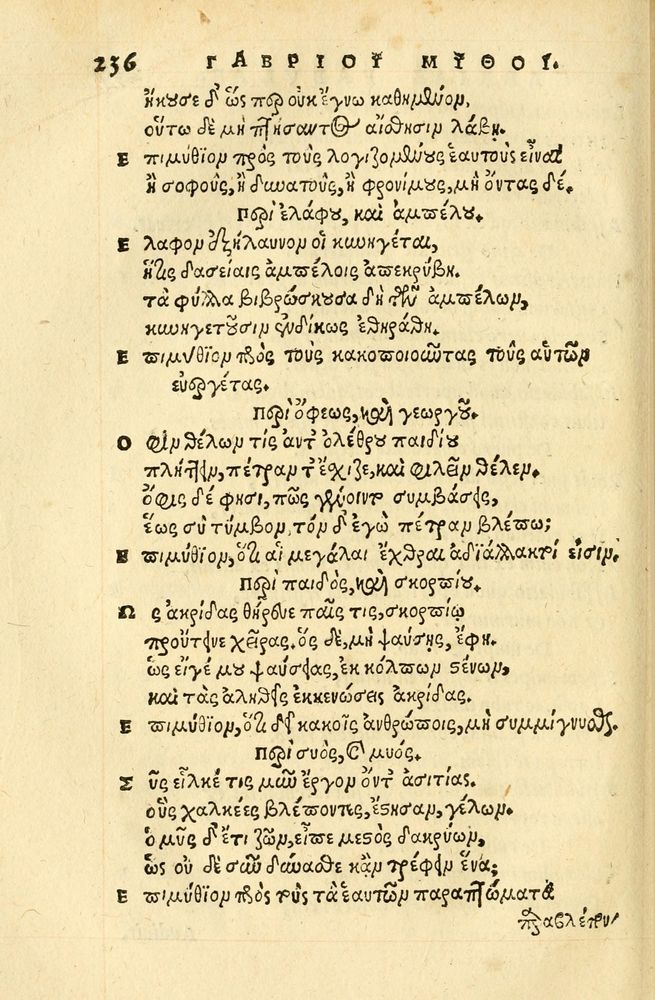 236 ΓΑΒΡΙΟΥ ΜΥΘΟΙ.
ἤκουσε δ' ὥς περ οὐκ ἔγνω καθημένον,
οὕτω δὲ μὴ πτήσαντος αἴσθησιν λάβῃ.
Ε πιμύθϊον πρὸς τοὺς λογιζομένους ἑαυτοὺς εἶναι
ἢ σοφοὺς, ἢ δυνατοὺς, ἢ φρονίμους, μὴ ὄντας δέ.
Περὶ ἐλάφου, καὶ ἀμπέλου.
Ε λαφον ἐξήλαυνον οἱ κυνηγέται,
ἥτις δασείαις ἀμπέλοις ἀπεκρύβη.
τὰ φύλλα βιβρώσκουσα δὴ τῶν ἀμπέλων,
κυνηγετοῦσιν ἐνδίκως ἐθηράθη.
Ε πιμύθϊον πρὸς τοὺς κακοποιοῦντας τοὺς αὐτῶν
εὐεργέτας.
Περὶ ὄφεως, καὶ γεωργοῦ.
Ο φιν θέλων τίς ἀντ' ὀλέθρου παιδίου
πλήττειν, πέτραν τ' ἔσχιζε, καὶ φιλεῖν θέλεν.
ὄφις δέ φησι, πῶς γένοιντο συμβάσεις,
ἕως σὺ τύμβον, τὸν δ' ἐγὼ πέτραν βλέπω;
Ε πιμύθϊον, ὅτι αἱ μεγάλαι ἔχθραι ἀδιάλλακτοί εἰσιν.
Περὶ παιδὸς, καὶ σκορπίου.
Ω ς ἀκρίδας θήρευε παῖς τις, σκορπίῳ
προὔτεινε χεῖρας. ὃς δὲ, μὴ ψαύσῃς, ἔφη.
ὡς εἴγέ μου ψαύσειας, ἐκ κόλπων στένων,
καὶ τὰς ἀληθεῖς ἐκκενώσεις ἀκρίδας.
Ε πιμύθϊον, ὅτι δεῖ κακοῖς ἀνθρώποις, μὴ συμμίγνυσθαι.
Περὶ συὸς, καὶ μυός.
Σ ῦς εἷλκέ τις μῦν ἔργον ὄντ' ἀσιτίας.
οὓς χαλκέες βλέποντες, ἔστησαν, γέλων.
ὁ μῦς δ' ἔτι ζῶν, εἶπε μεστὸς δακρύων,
ὡς οὐ δὲ σῦν δύνασθε κἂν τρέφειν ἕνα;
Ε πιμύθϊον πρὸς τοὺς τὰ ἑαυτῶν παραπτώματα
παραβλέπον/